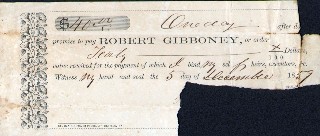 $40 00 One day after d
promise to pay ROBERT GIBBONEY, or order
Forty x/100 Dollars,
value received for the payment of which I bind my self heirs, executors, &c.
Witness my hand and seal the 5 day of December 185